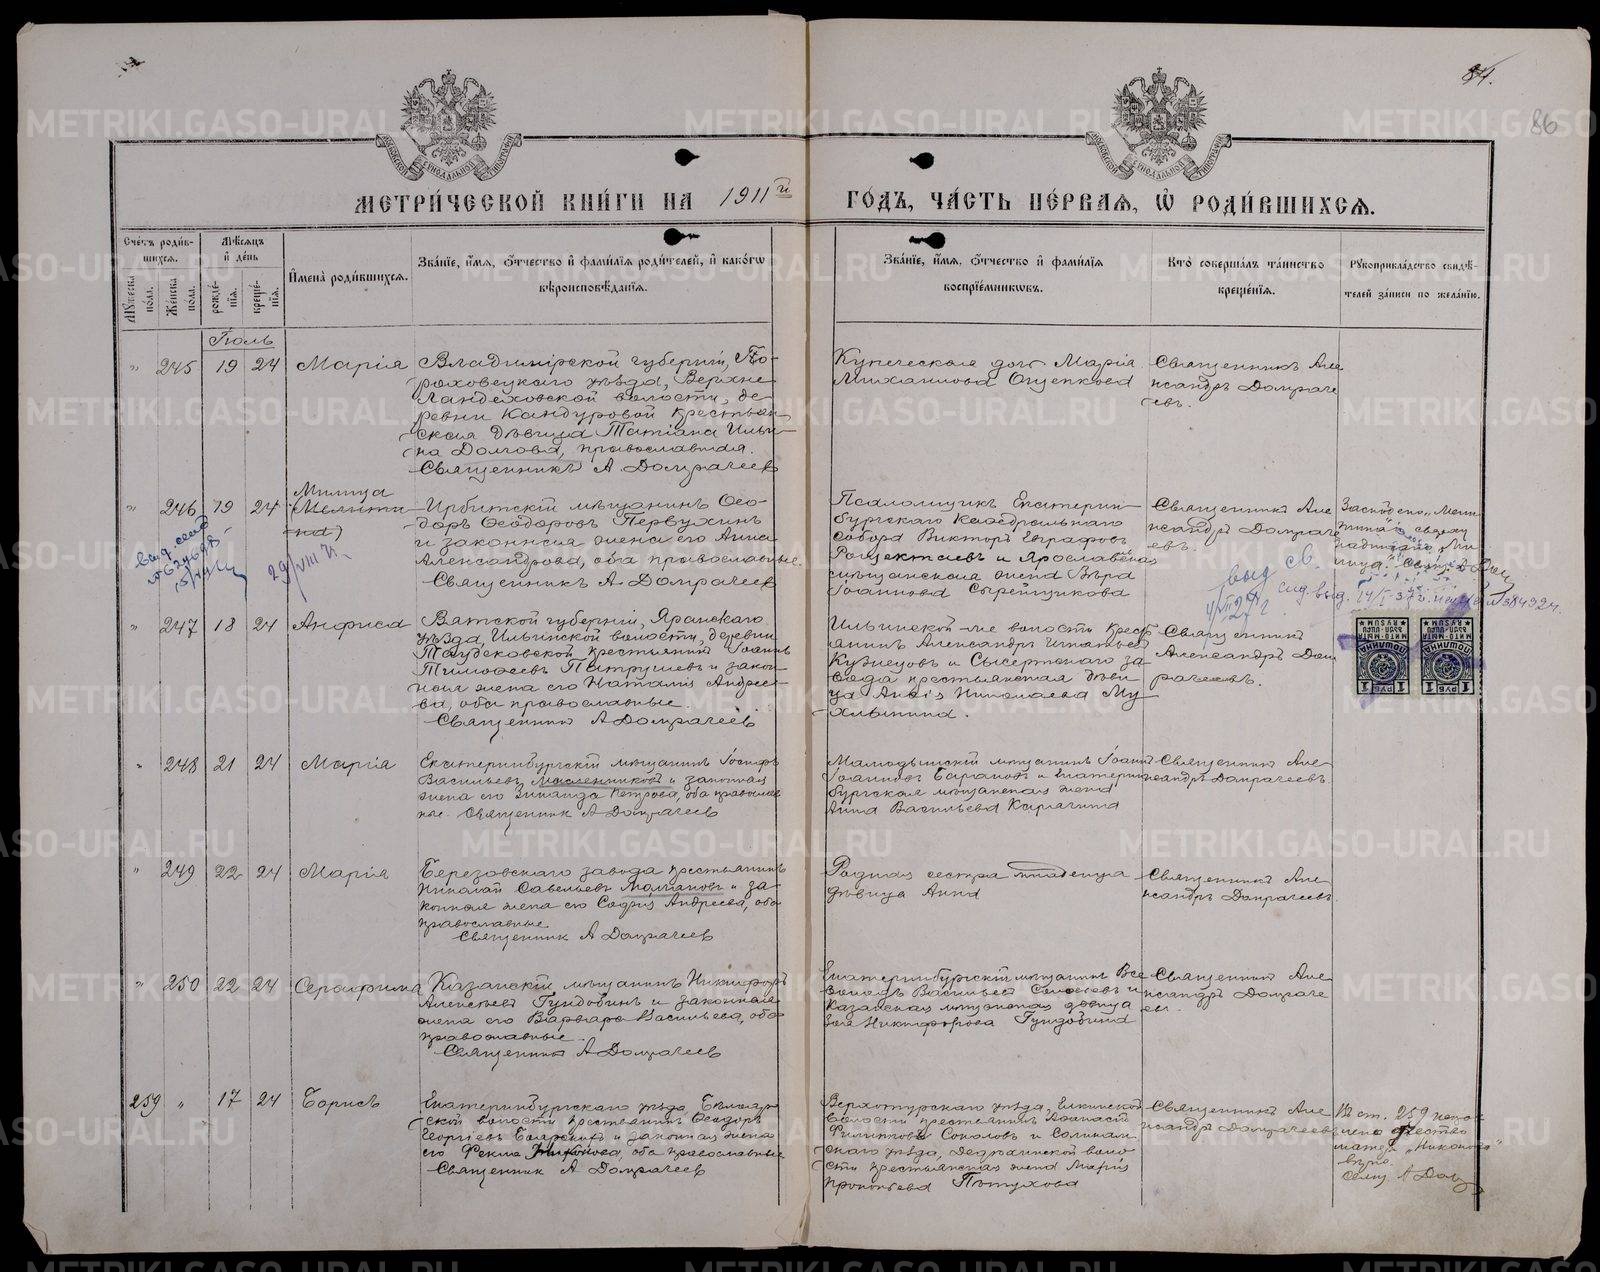 84.
86
МЕТРИ́ЧЕСКОЙ КНИ́ГИ НА 1911й ГО́ДЪ, ЧА́СТЬ ПЕ́РВАЯ, Ѡ РОДИ́ВШИХСЯ.
Сче́тъ роди́вшихся.
Му́жеска по́ла.
Же́нска по́ла.
Мѣ́сяцъ и де́нь
рожде́нія.
креще́нія.
Имена̀ роди́вшихся.
Зва́нїе, и́мя, о́тчество и фами́лїя роди́телей, и како́гѡ вѣроисповѣ́данїя.
Зва́нїе, и́мя, о́тчество и фами́лїя воспрїе́мникѡвъ.
Кто̀ соверша́лъ та́инство креще́нїя.
Рукоприкла́дство свидѣ́телей за́писи по жела́нїю.
Іюль
" 245 19 24 Марія
Владимірской губерніи, Го-
роховецкаго уѣзда, Верхне
Ландеховской волости, де-
ревни Кандуровой крестьян-
ская дѣвица Татіана Ильи-
на Долгова, православная.
Священникъ А Домрачеев
Купеческая дочь Марія
Михаилова Ошуркова
Священникъ Але
ксандръ Домраче
евъ.
" 246 19 24 Милица
Мелити
на)
29/VIII
Ирбитскій мѣщанинъ Ѳео-
доръ Ѳеодоровъ Первухинъ
и законная жена его Анна
Александрова, оба православные
Священникъ А Домрачеев
Псаломщикъ Екатерин-
бургскаго Каѳедральнаго
Собора Викторъ Евграфовъ
и Ярославская
мѣщанская жена Вѣра
Іоаннова Сырейщикова
Священникъ Але
ксандръ Домраче
евъ.
выд св.
" 247 18 24 Анфиса
Вятской губерніи, Яранскаго
уѣзда, Ильинской волости, деревни
крестьянинъ Іоаннъ
Тимофеевъ Патрушевъ и закон-
ная жена его Наталія Андрее-
ва, оба православные.
Священникъ А Домрачеев
Ильинской-же волости крест
анинъ Александръ Игнатьевъ
Кузнецовъ и Сысертскаго за-
вода крестьянская дѣви-
ца Николаева Му-
хлынина.
Священникъ
Александръ Дом
рачеевъ.
" 248 21 24 Марія
Екатеринбургскій мѣщанинъ Іосифъ
Васильевъ Масленниковъ и законная
жена его Зинаида Петрова, оба православ
ные. Священникъ А Домрачеев
Малмыжскій мѣщанинъ Іоаннъ
Іоанновъ Барановъ и Екатерин
бургская мѣщанская жена
Анна Васильева
Священникъ Але
ксандръ Домрачеевъ.
" 249 22 24 Марія
Березовскаго завода крестьянинъ
Николай Савельевъ Молчановъ и за-
конная жена его Софія Андреева, оба
православные
Священник А Домрачеев
Родная сестра младенца
дѣвица Анна
Священникъ Але
ксандръ Домрачеевъ
" 250 22 24 Серафима
Казанскій мѣщанинъ Никифоръ
Алексѣевъ Гундобинъ и законная
жена его Варвара Васильева, оба
православные.
Священникъ А Домрачеев
Екатеринбургскій мѣщанинъ Все
володъ Васильевъ Соловьевъ и
Казанская мѣщанская дѣвица
Зоя Никифорова Гундобина
Священникъ Але
ксандръ Домраче
евъ.
259 " 17 24 Борисъ
Екатеринбургскаго уѣзда,
ской волости крестьянинъ Ѳеодоръ
Георгіевъ Боярскихъ и законная жена
его Фекла Никонова, оба православные
Священникъ А Домрачеев
Верхотурскаго уѣзда,
волости крестьянинъ Аѳанасій
Филипповъ Соколовъ и Соликам-
скаго уѣзда, Дедюхинской воло-
сти крестьянская жена Марія
Прокопьева Пѣтухова
Священникъ Але
ксандръ Домрачеевъ
Въ ст. 259
отчество
матери „Никонова"
вѣрно.
Свящ А Дом
1 РУБ
1 РУБ
ПОШЛИНА
ПОШЛИНА
METRIKI.GASO-URAL.RU